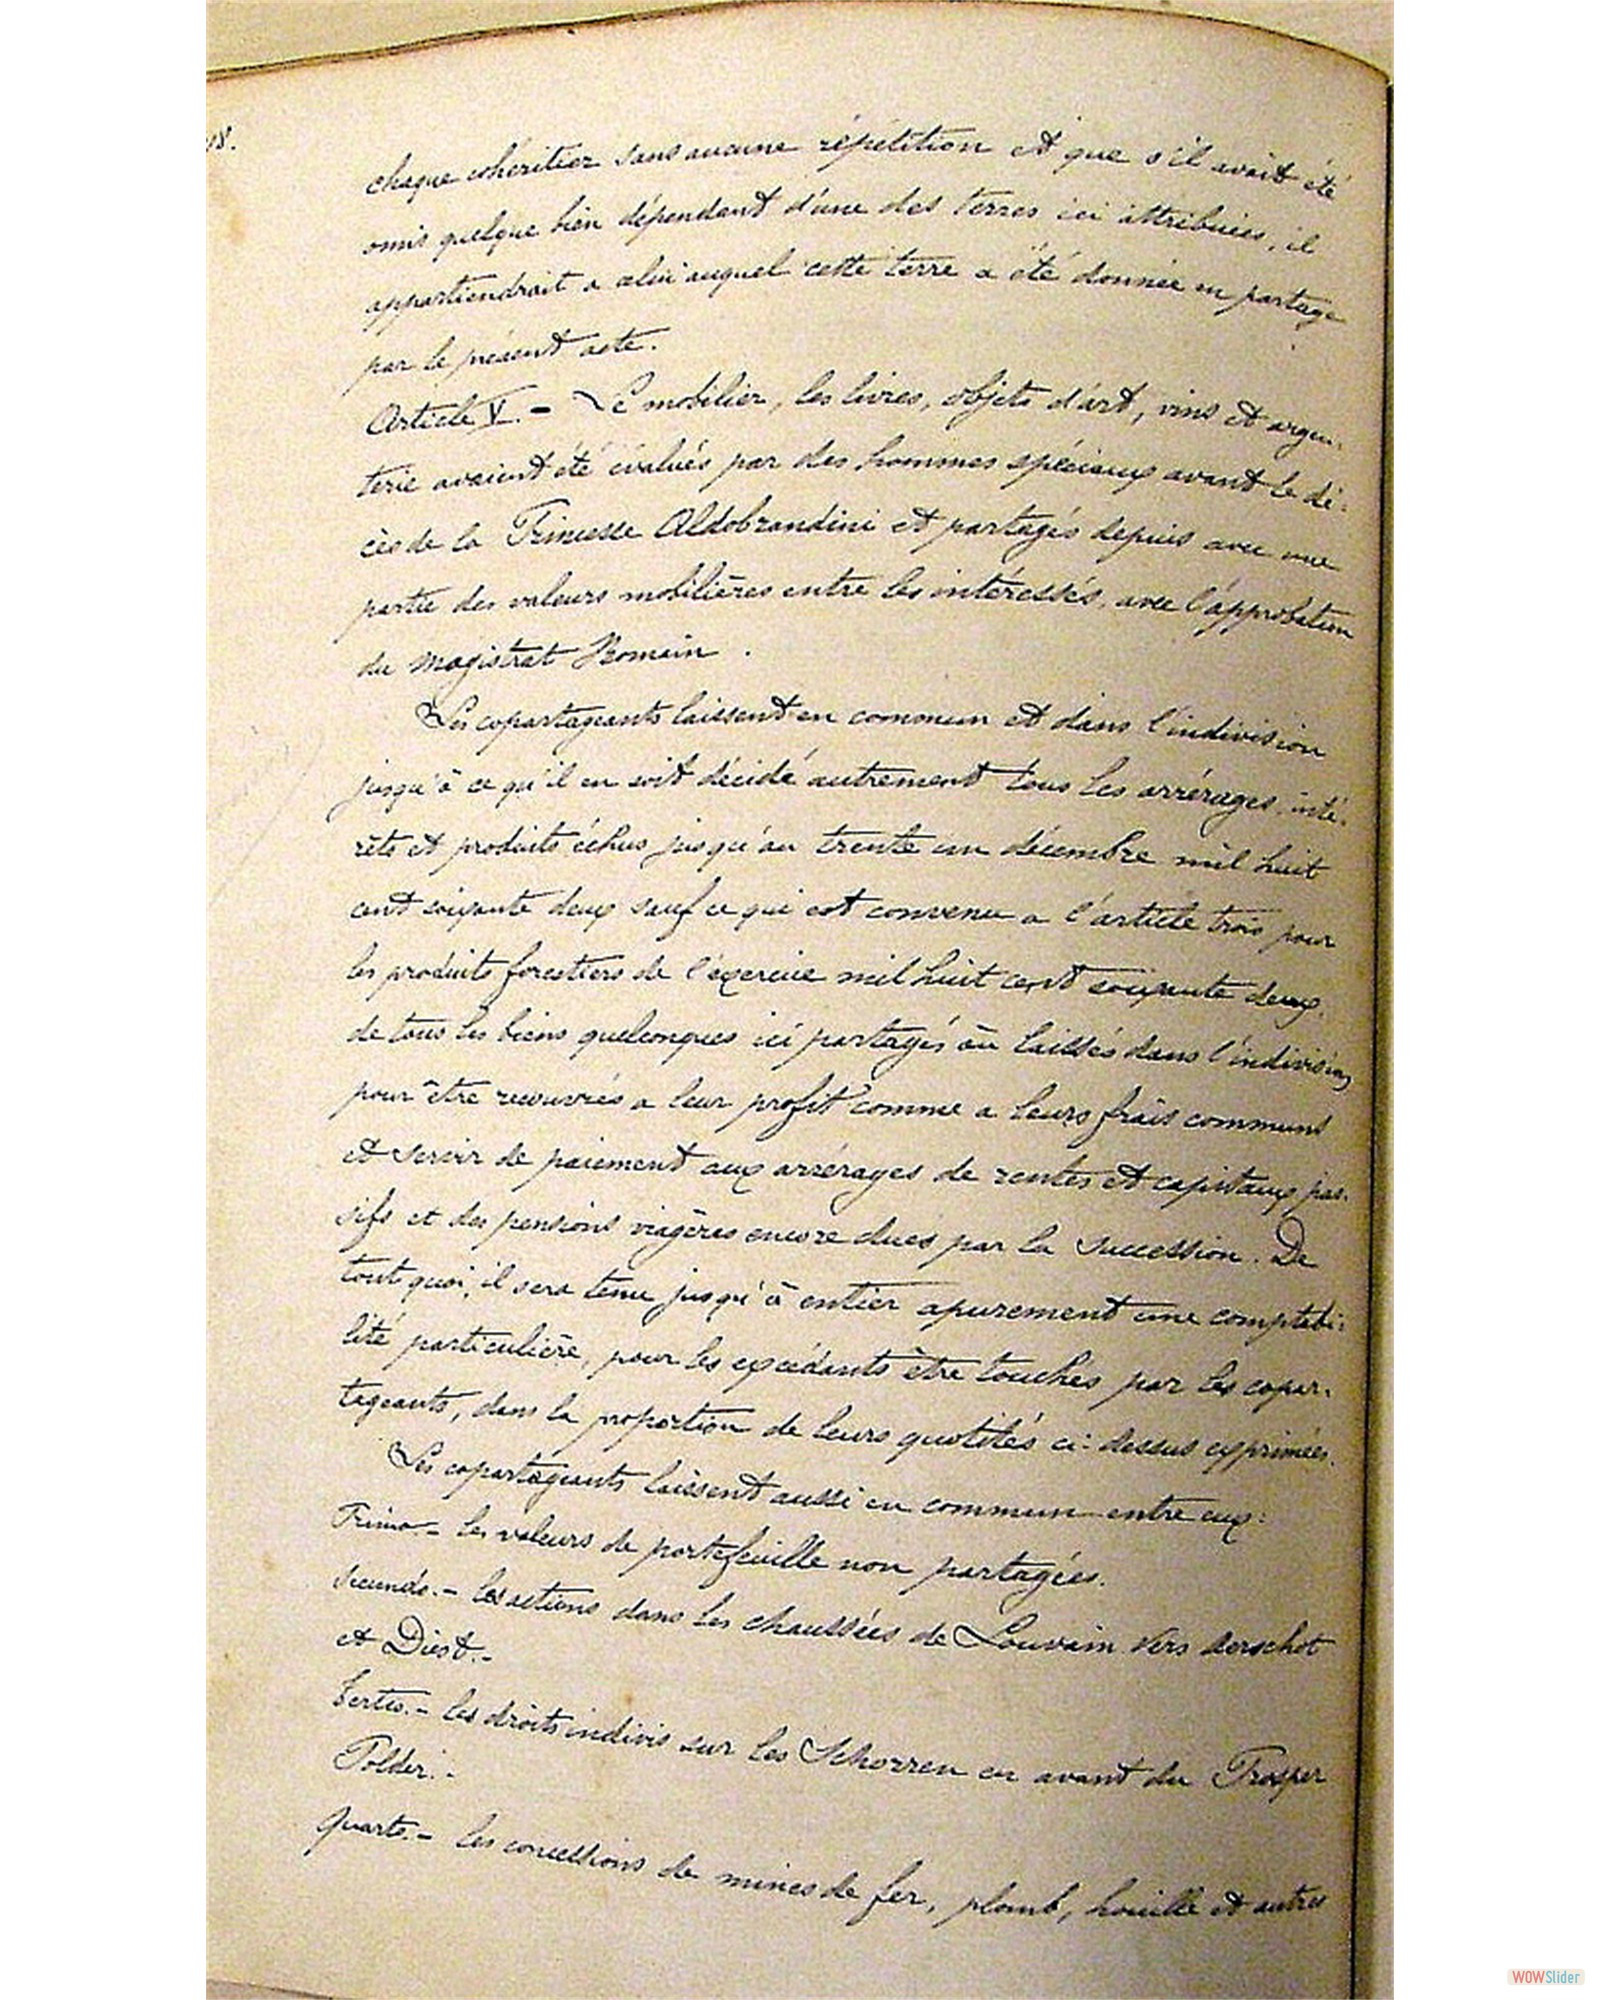 18.
chaque cohéritier sans aucune répétition et que s'il avait été
omis quelque bien dépendant d'une des terres ici attribuées, il
appartiendrait a celui auquel cette terre a été donnée en partage
par le présent acte.
Article V. - Le mobilier, les livres, objets d'art, vins et argen-
terie avaient été évalués par des hommes spéciaux avant le dé-
cès de la Princesse Aldobrandini et partagés depuis avec une
partie des valeurs mobilières entre les intéressés, avec l'approbation
du magistrat Romain.
Les copartageants laissent en commun et dans l'indivision
jusqu'à ce qu'il en soit décidé autrement tous les arrérages, inté-
rêts et produits échus jusqu'au trente un décembre mil huit
cent soixante deux sauf ce qui est convenu a l'article trois pour
les produits forestiers de l'exercice mil huit cent soixante deux,
de tous les biens quelconques ici partagés ou laissés dans l'indivision,
pour être recouvrés a leur profit comme a leurs frais communs
et servir de paiement aux arrérages de rentes et capitaux pas-
sifs et des pensions viagères encore dues par la succession. De
tout quoi, il sera tenu jusqu'à entier apurement une comptabi-
lité particulière, pour les excédants être touchés par les copar-
tageants, dans la proportion de leurs quotités ci-dessus exprimées.
Les copartageants laissent aussi en commun entre eux:
Primo - les valeurs de portefeuille non partagées.
Secundo. - les actions dans les chaussées de Louvain vers Aerschot
et Diest. -
Tertio. - les droits indivis sur les Schorren en avant du Prosper
Polder. -
Quarto. - les concessions de mines de fer, plomb, houille et autres
WOWSlider